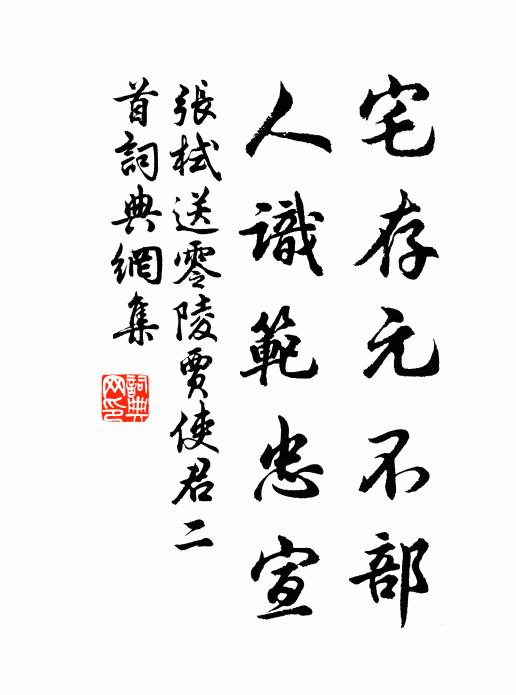 宅存元不部
人識範忠宣
張栻送零陵賈使君二
首詞典網集
詞典网印